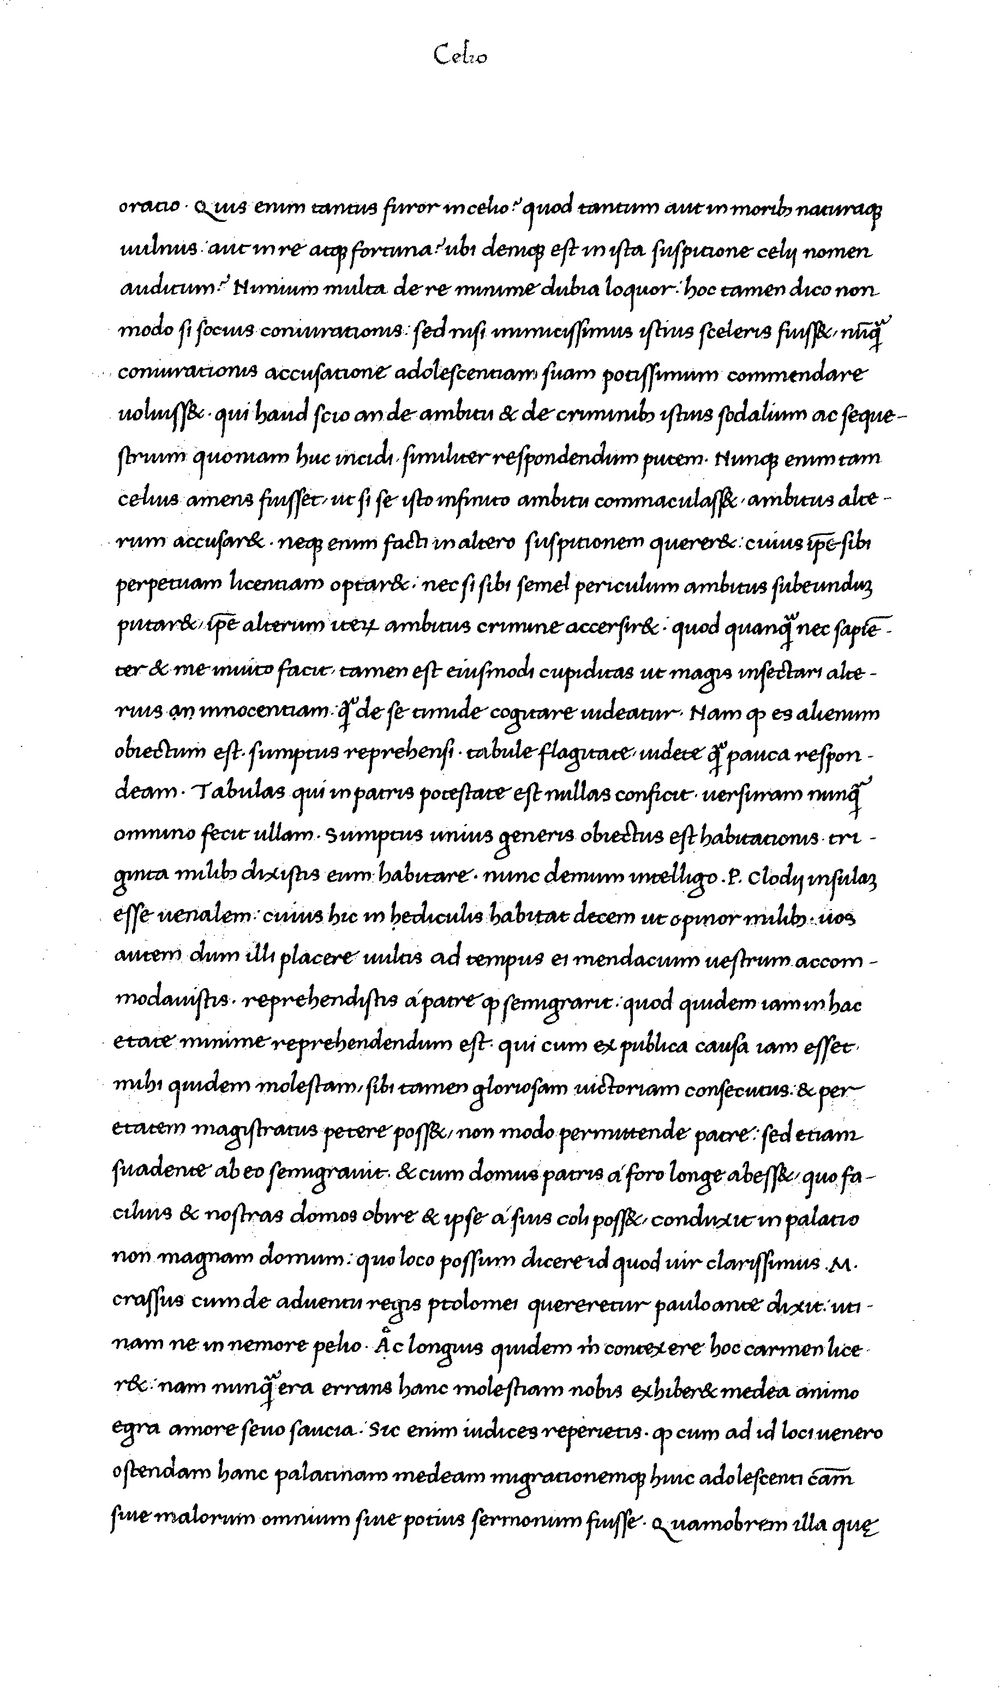 Celio
oratio. Quis enim tantus furor in celio? quod tantum aut in morib; naturaq;
uulnus: aut in re atq; fortuna? ubi deniq; est in ista suspitione celij nomen
auditum? Nimium multa de re minime dubia loquor: hoc tamen dico non
modo si socius coniurationis: sed nisi inimicissimus istius sceleris fuiss&, nūq̃
coniurationis accusatione adolescentiam suam potissimum commendare
uoluiss&. qui haud scio an de ambitu & de criminib; istius sodalium ac seque-
strium quoniam huc incidi. similiter respondendum putem. Nunq; enim tam
celius amens fuisset, ut si se isto infinito ambitu commaculass&, ambitus alte-
rum accusar&. neq; enim facti in altero suspitionem querer&: cuius ip̄e sibi
perpetuam licentiam optar&: nec si sibi semel periculum ambitus subeunduꝫ
putar&, ip̄e alterum iteꝝ ambitus crimine accersir&. quod quanq̃ nec sapiē-
ter & me inuito facit, tamen est eiusmodi cupiditas ut magis insectari alte-
rius an innocentiam: q̃ de se timide cogitare uideatur. Nam ꝙ es alienum
obiectum est. sumptus reprehensi. tabule flagitate, uidete q̃ pauca respon-
deam. Tabulas qui in patris potestate est nullas conficit. uersuram nunq̃
omnino fecit ullam. Sumptus unius generis obiectus est habitationis. tri-
ginta milib; dixistis eum habitare. nunc demum intelligo .P. Clodij insulaꝫ
esse uenalem: cuius hic in hediculis habitat decem ut opinor milib;. uos
autem dum illi placere uultis ad tempus ei mendacium uestrum accom-
modauistis. reprehendistis á patre ꝙ semigrarit: quod quidem iam in hac
etate minime reprehendendum est. qui cum ex publica causa iam esset,
mihi quidem molestam, sibi tamen gloriosam uictoriam consecutus: & per
etatem magistratus petere poss&, non modo permittende patre: sed etiam
suadente ab eo semigrauit. & cum domus patris á foro longe abess&, quo fa-
cilius & nostras domos obire & ipse á suis coli poss&, conduxit in palatio
non magnam domum: quo loco possum dicere id quod uir clarissimus .M.
crassus cum de aduentu regis ptolomei quereretur paulo ante dixit: uti-
nam ne in nemore pelio. Ac longius quidem m̄ contexere hoc carmen lice-
r&: nam nunq̃ era errans hanc molestiam nobis exhiber& medea animo
egra amore seuo saucia. Sic enim iudices reperietis. ꝙ cum ad id loci uenero
ostendam hanc palatinam medeam migrationemq; huic adolescenti c̄am̄
siue malorum omnium siue potius sermonum fuisse. Quamobrem illa quę